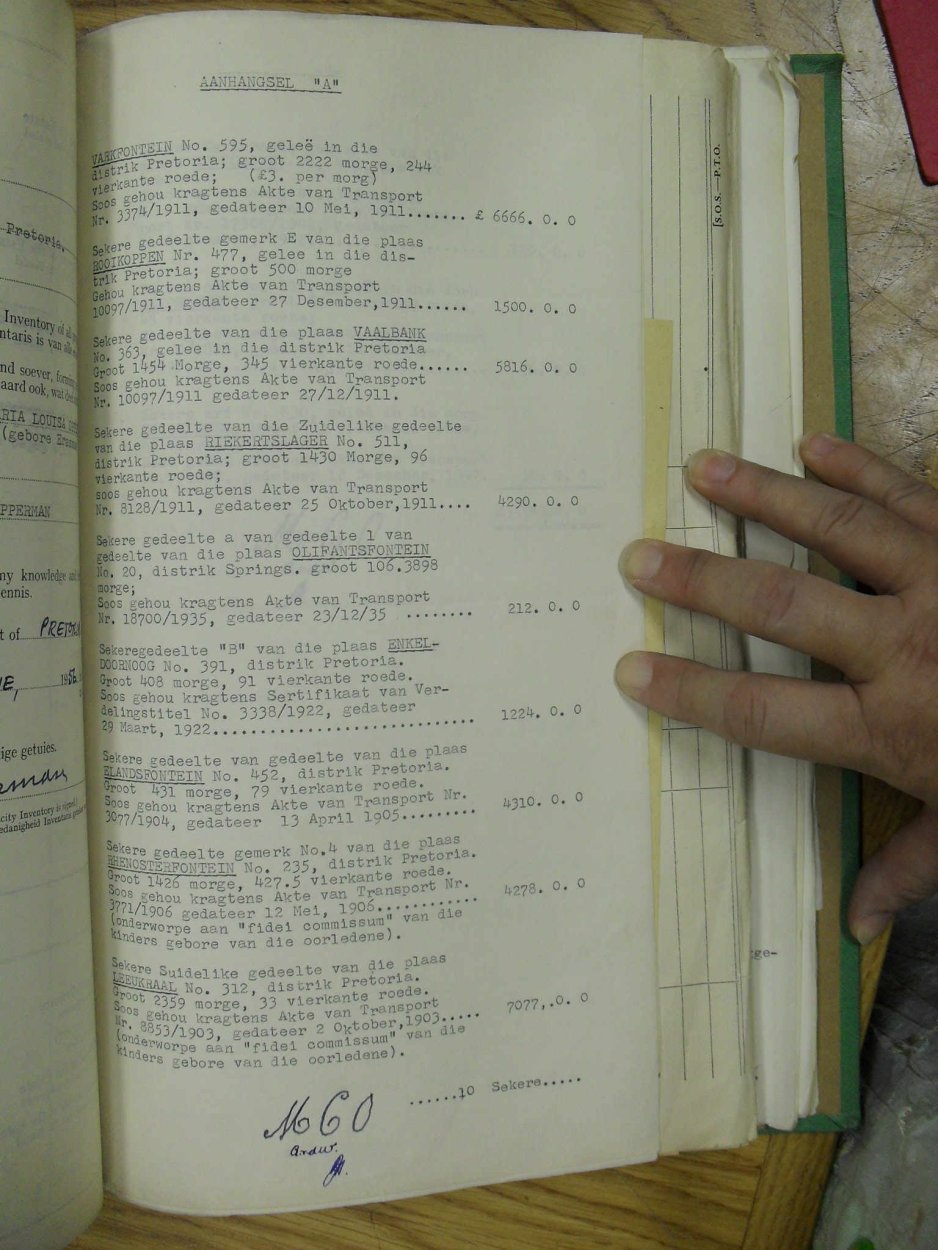 AANHANGSEL "A"
VARKFONTEIN No. 595, geleë in die
distrik Pretoria; groot 2222 morge, 244
vierkante roede; (£3. per morg)
Soos gehou kragtens Akte van Transport
Nr. 3374/1911, gedateer 10 Mei, 1911....... £ 6666. 0. 0
Sekere gedeelte gemerk E van die plaas
ROOIKOPPEN Nr. 477, gelee in die dis-
trik Pretoria; groot 500 morge
Gehou kragtens Akte van Transport
10097/1911, gedateer 27 Desember,1911...... 1500. 0. 0
Sekere gedeelte van die plaas VAALBANK
No. 363, gelee in die distrik Pretoria
Groot 1454 Morge, 345 vierkante roede...... 5816. 0. 0
Soos gehou kragtens Akte van Transport
Nr. 10097/1911 gedateer 27/12/1911.
Sekere gedeelte van die Zuidelike gedeelte
van die plaas RIEKERTSLAGER No. 511,
distrik Pretoria; groot 1430 Morge, 96
vierkante roede;
soos gehou kragtens Akte van Transport
Nr. 8128/1911, gedateer 25 Oktober,1911.... 4290. 0. 0
Sekere gedeelte a van gedeelte 1 van
gedeelte van die plaas OLIFANTSFONTEIN
No. 20, distrik Springs. groot 106.3898
morge;
Soos gehou kragtens Akte van Transport
Nr. 18700/1935, gedateer 23/12/35 ........ 212. 0. 0
Sekeregedeelte "B" van die plaas ENKEL-
DOORNOOG No. 391, distrik Pretoria.
Groot 408 morge, 91 vierkante roede.
Soos gehou kragtens Sertifikaat van Ver-
delingstitel No. 3338/1922, gedateer
29 Maart, 1922............................. 1224. 0. 0
Sekere gedeelte van gedeelte van die plaas
ELANDSFONTEIN No. 452, distrik Pretoria.
Groot 431 morge, 79 vierkante roede.
Soos gehou kragtens Akte van Transport Nr.
3077/1904, gedateer 13 April 1905......... 4310. 0. 0
Sekere gedeelte gemerk No.4 van die plaas
RHENOSTERFONTEIN No. 235, distrik Pretoria.
Groot 1426 morge, 427.5 vierkante roede.
Soos gehou kragtens Akte van Transport Nr.
3771/1906 gedateer 12 Mei, 1906............ 4278. 0. 0
(onderworpe aan "fidei commissum" van die
kinders gebore van die oorledene).
Sekere Suidelike gedeelte van die plaas
LEEUKRAAL No. 312, distrik Pretoria.
Groot 2359 morge, 33 vierkante roede.
Soos gehou kragtens Akte van Transport
Nr. 8853/1903, gedateer 2 Oktober,1903..... 7077,.0. 0
(onderworpe aan "fidei commissum" van die
kinders gebore van die oorledene).
......10 Sekere.....
M C O
[S.O.S.—P.T.O.
Pretoria.
Inventory of all
ntaris is van alle
nd soever, forming
aard ook, wat
RIA LOUISA
(gebore Erasmus
PPERMAN
my knowledge and
ennis.
t of PRETORIA
NE, 195
ige getuies.
city Inventory is signed
edanigheid Inventaris
ge-